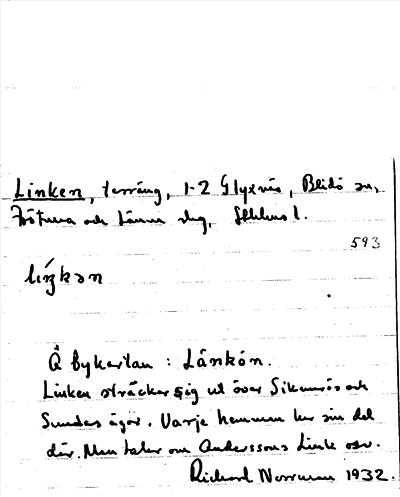 Linken, terräng, 1-2 Glyxnäs, Blidö sn,
Frötuna och Länna slg, Sthlms l.
593
liŋkən
Å bykartan: Lånkön.
Linken sträcker sig ut över Sikmrös och
Sundes ägor. Varje hemman har sin del
där. Man talar om Anderssons Link osv.
Rickard Norrman 1932.